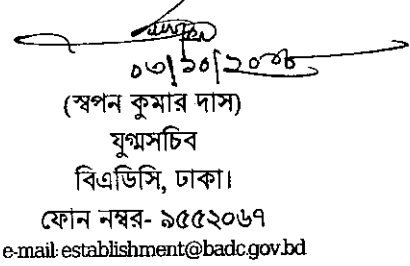 (স্বপন কুমার দাস)
যুগ্মসচিব
বিএডিসি, ঢাকা।
ফোন নম্বর- ৯৫৫২০৬৭
e-mail: establishment@badc.gov.bd